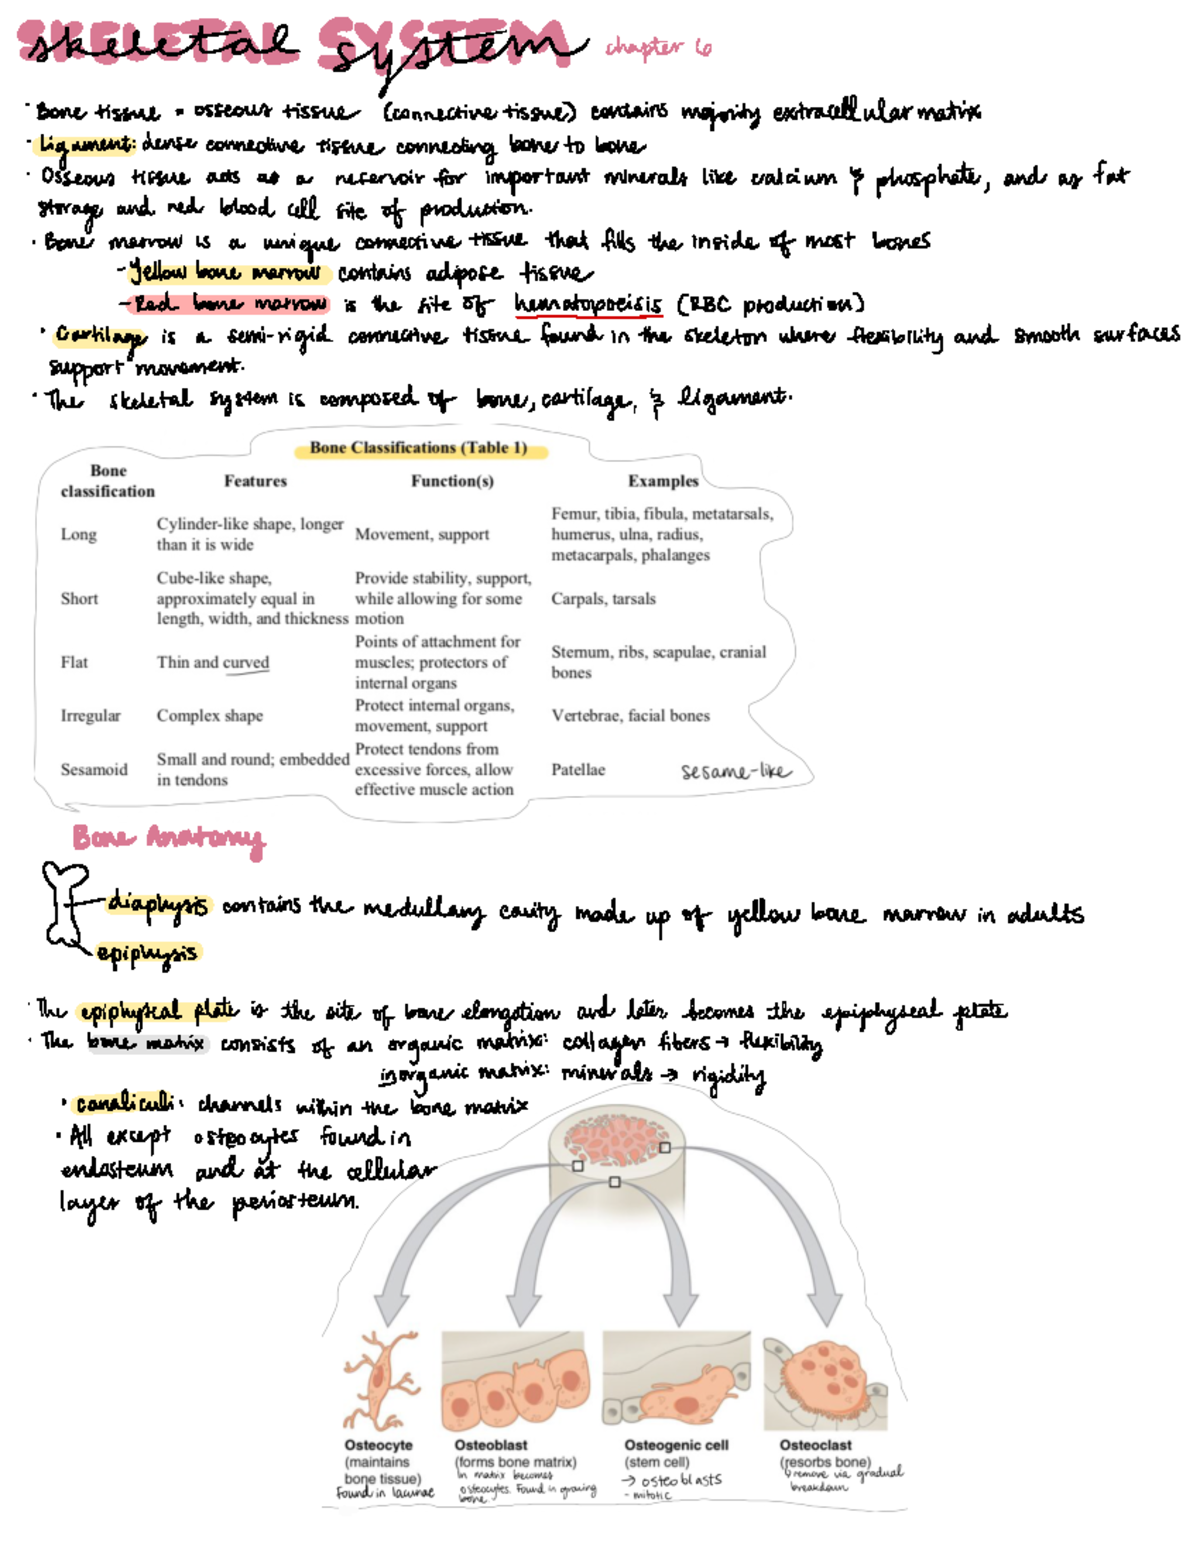 SKELETAL SYSTEM
skeletal system chapter 6
· Bone tissue = osseous tissue (connective tissue) contains majority extracellular matrix
· Ligament: dense connective tissue connecting bone to bone
· Osseous tissue acts as a reservoir for important minerals like calcium & phosphate, and as fat
storage and red blood cell site of production.
· Bone marrow is a unique connective tissue that fills the inside of most bones
- Yellow bone marrow contains adipose tissue
- Red bone marrow is the site of hematopoeisis (RBC production)
· Cartilage is a semi-rigid connective tissue found in the skeleton where flexibility and smooth surfaces
support movement.
· The skeletal system is composed of bone, cartilage, & ligament.
Bone Classifications (Table 1)
Bone classification Features Function(s) Examples
Long Cylinder-like shape, longer than it is wide Movement, support Femur, tibia, fibula, metatarsals, humerus, ulna, radius, metacarpals, phalanges
Short Cube-like shape, approximately equal in length, width, and thickness Provide stability, support, while allowing for some motion Carpals, tarsals
Flat Thin and curved Points of attachment for muscles; protectors of internal organs Sternum, ribs, scapulae, cranial bones
Irregular Complex shape Protect internal organs, movement, support Vertebrae, facial bones
Sesamoid Small and round; embedded in tendons Protect tendons from excessive forces, allow effective muscle action Patellae sesame-like
Bone Anatomy
diaphysis contains the medullary cavity made up of yellow bone marrow in adults
epiphysis
· The epiphyseal plate is the site of bone elongation and later becomes the epiphyseal plate
· The bone matrix consists of an organic matrix: collagen fibers → flexibility
inorganic matrix: minerals → rigidity
· canaliculi: channels within the bone matrix
· All except osteocytes found in
endosteum and at the cellular
layer of the periosteum.
Osteocyte
(maintains
bone tissue)
found in lacunae
Osteoblast
(forms bone matrix)
In matrix becomes
osteocytes. Found in growing
bone.
Osteogenic cell
(stem cell)
→ osteoblasts
- mitotic
Osteoclast
(resorbs bone)
↳ remove via gradual
breakdown